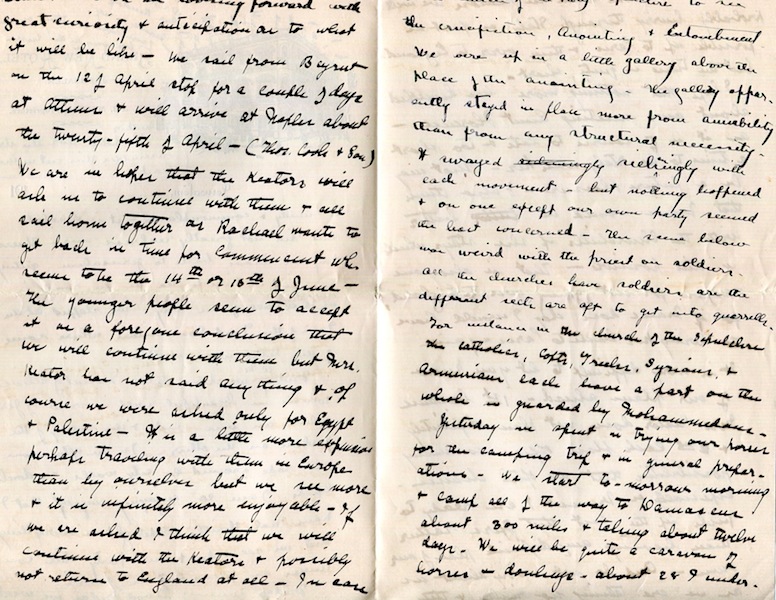 looking forward with
great curiosity & anticipation as to what
it will be like – We sail from Beyrut
on the 12 of April stop for a couple of days
at Athens & will arrive at Naples about
the twenty-fifth of April – (Thos. Cook & Son)
We are in hopes that the Keators will
ask us to continue with them & all
sail home together as Rachael wants to
get back in time for Commencement wh.
seems to be the 14th or 16th of June –
The younger people seem to accept
it as a foregone conclusion that
we will continue with them but Mrs.
Keator has not said anything & of
course we were asked only for Egypt
& Palestine – It is a little more expensive
perhaps traveling with them in Europe
than by ourselves but we see more
& it is infinitely more enjoyable – If
we are asked I think that we will
continue with the Keators & possibly
not return to England at all – In case
to see
the crucifixion, Anointing & Entombment.
We were up in a little gallery above the
place of the anointing – The gallery appar-
ently stayed in place more from amiability
than from any structural necessity –
It swayed with
each movement – but nothing happened
& no one except our own party seemed
the least concerned – The scene below
was weird with the priest on soldiers.
all the churches have soldiers as the
different sects are apt to get into quarrells.
For instance in the church of the Sepulchre
the Catholics, Copts, Greeks, Syrians, &
Armenians each have a part and the
whole is guarded by Mohammedans –
Yesterday we spent in trying our horses
for the camping trip & in general prepar-
ations – We start to-morrow morning
& camp all of the way to Damascus
about 300 miles & taking about twelve
days – We will be quite a caravan of
horses & donkeys – about 28 I under-